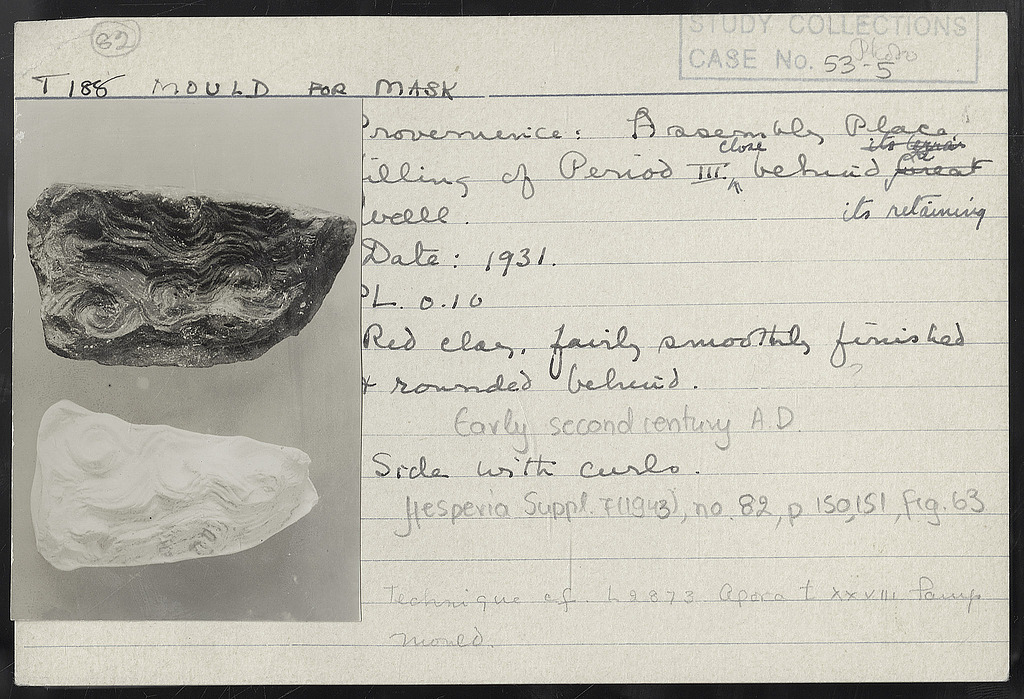 82
STUDY COLLECTIONS
CASE No. 53-5
T 188 MOULD FOR MASK
Provenience: Assembly Place.
filling of Period III, close behind great
its retaining
wall.
Date: 1931.
PL. 0.10
Red clay, fairly smoothly finished
+ rounded behind.
Early second century A.D.
Side with curls.
Hesperia Suppl. 7(1943), no. 82, p 150,151, fig. 63
Technique cf. L 2873 Agora t XXVIII Lamp
mould.